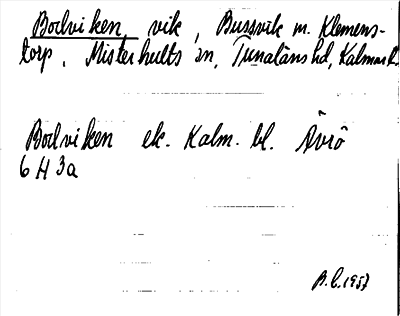 Bodviken, vik, Bussvik m. Klemens-
torp, Misterhults sn, Tunaläns hd, Kalmar l.
Bodviken ek. Kalm. bl. Ävrö
6 H 3a
B.L. 1957